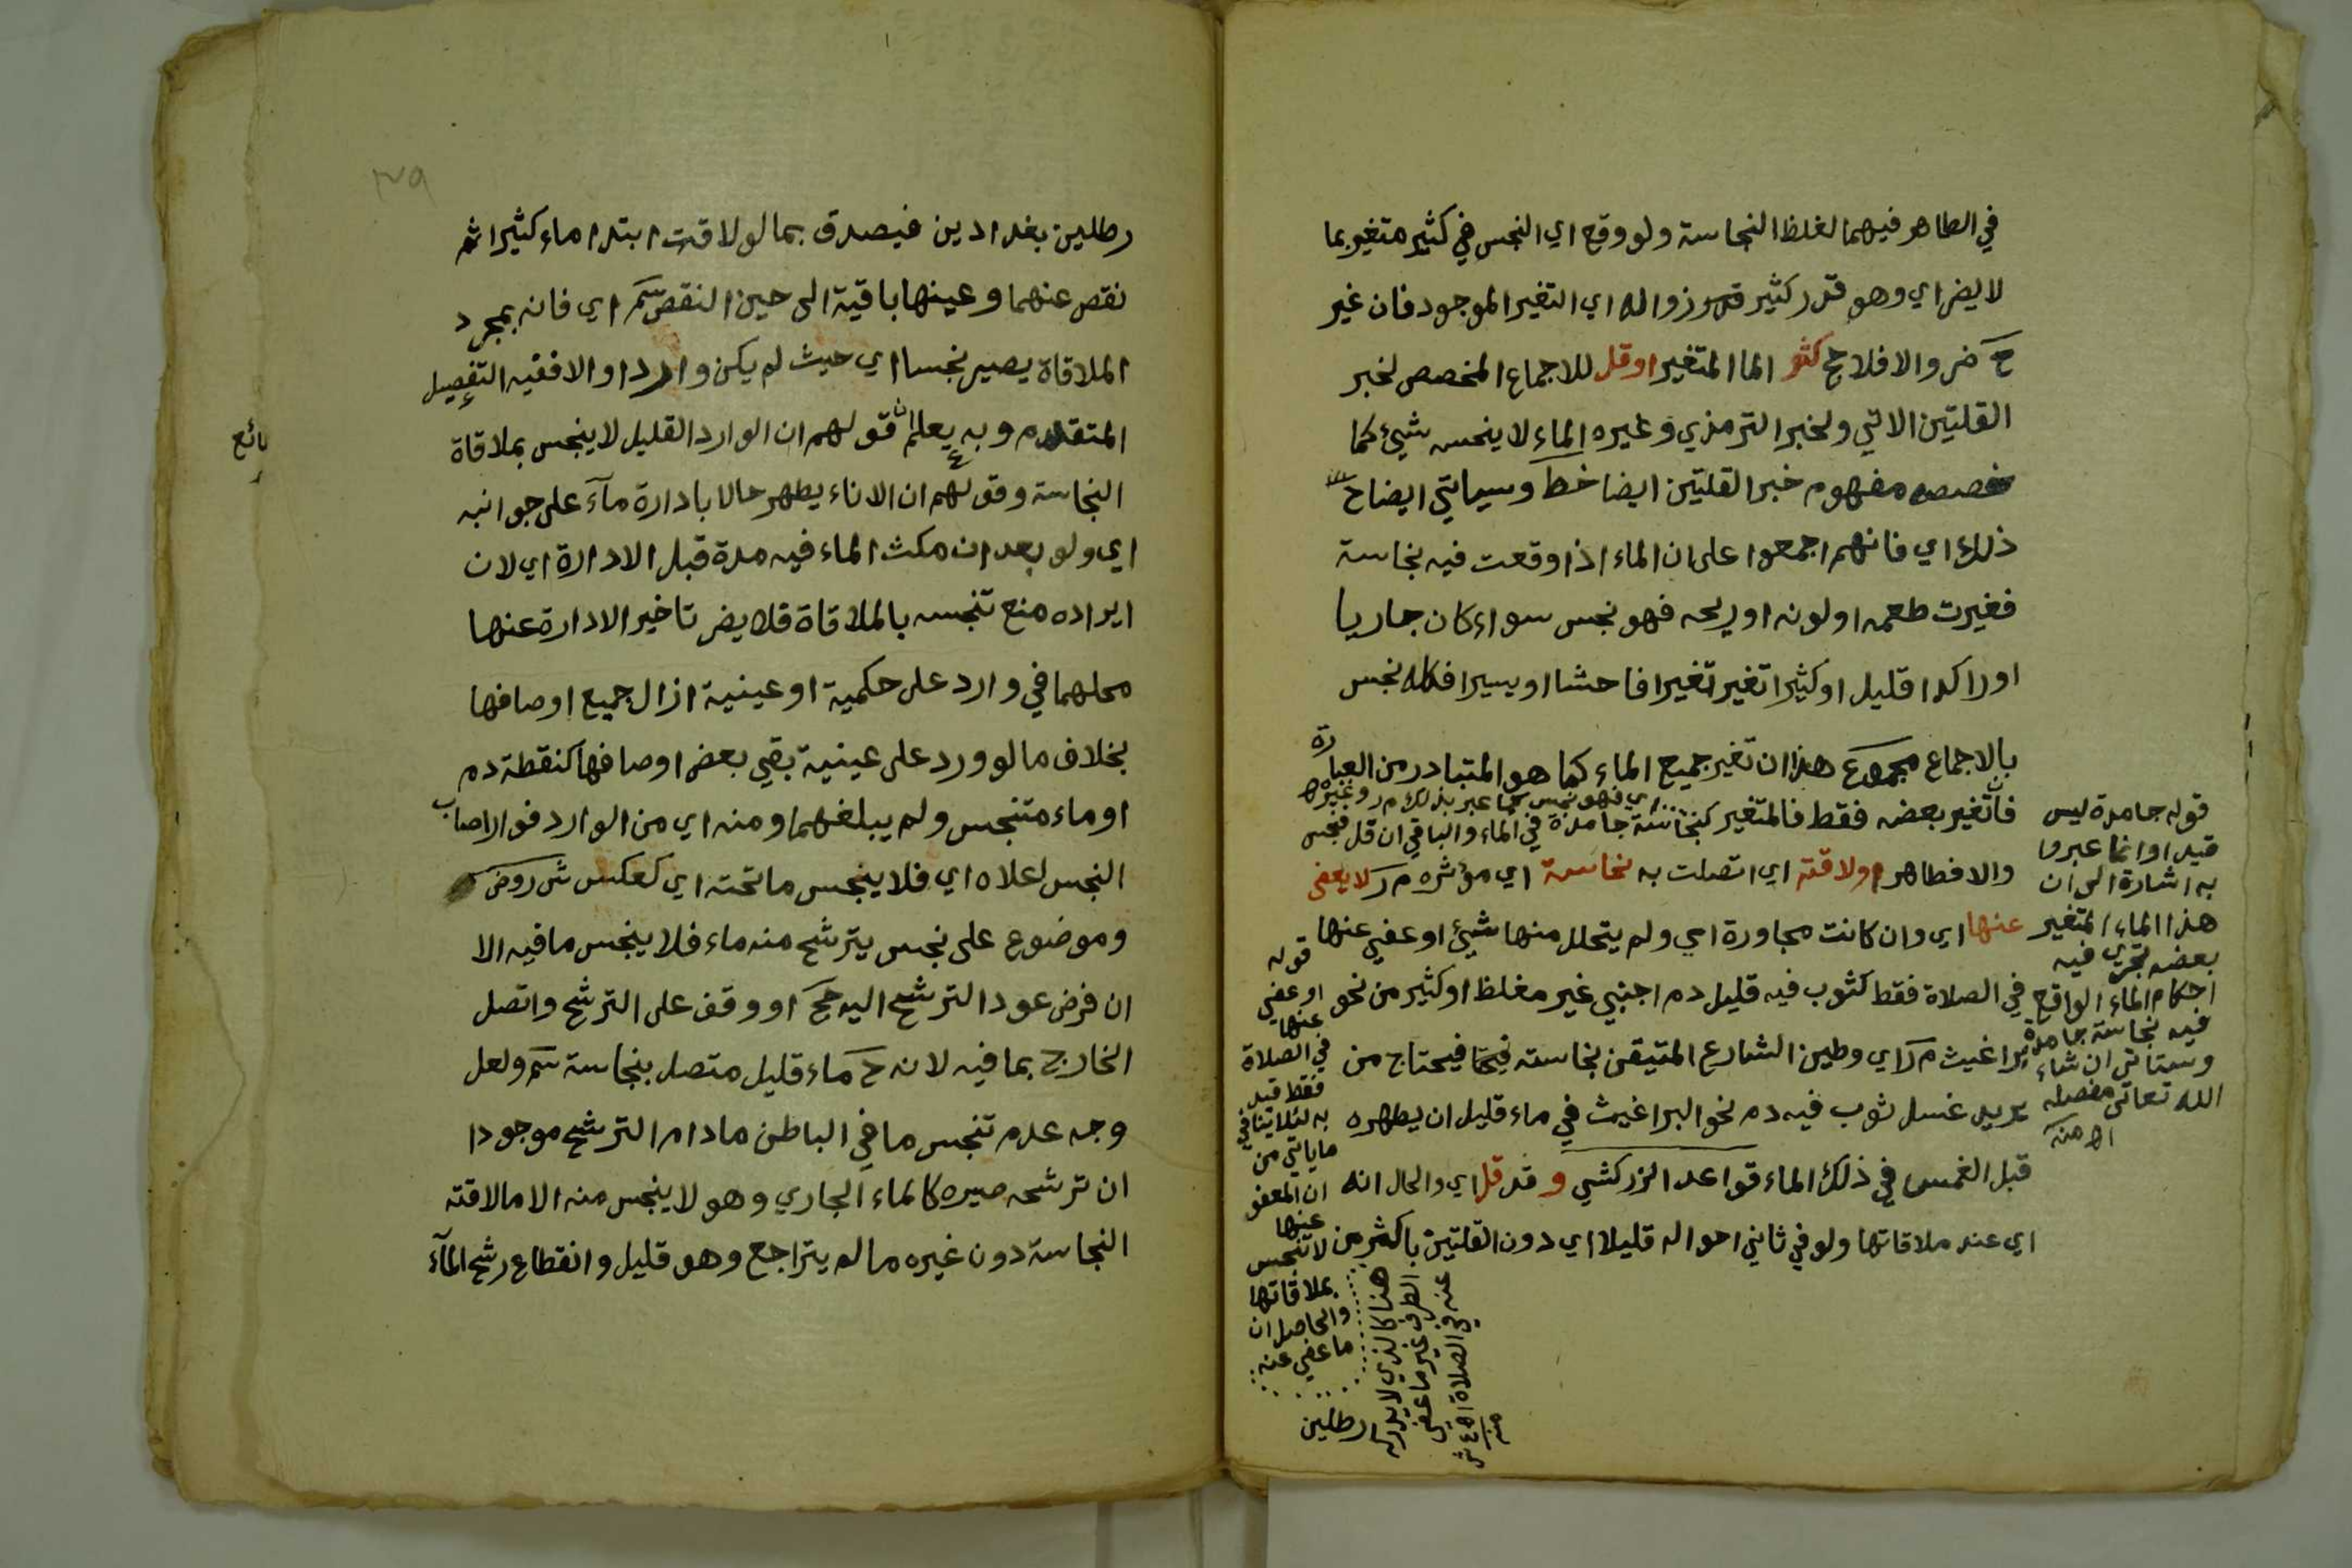 في الطاهر فيهما لغلظ النجاسة ولو وقع اي النجس في كثير متغير بما
لا يضر اي وهو قدر كثير قدر زواله اي التغير الموجود فان غير
ح ضر والا فلا ح كثر الما المتغير او قل للاجماع المخصص لخبر
القلتين الاتي ولخبر الترمذي وغيره الماء لا ينجسه شيئ كما
خصصه مفهوم خبر القلتين ايضا خط وسياتي ايضاح
ذلك اي فانهم اجمعوا على ان الماء اذا وقعت فيه نجاسة
فغيرت طعمه او لونه او ريحه فهو نجس سواء كان جاريا
او راكدا قليل او كثيرا تغير تغيرا فاحشا او يسيرا فكله نجس
بالاجماع مجموع هذا ان تغير جميع الماء كما هو المتبادر من العبارة
فان تغير بعضه فقط فالمتغير كنجاسة جامدة في الماء والباقي ان قل فنجس
اي فهو نجس كما عبر بذلك م ر وغيره
والا فطاهر او لاقته اي اتصلت به نجاسة اي مؤثره م ر لا يعفى
عنها اي وان كانت مجاورة اي ولم يتحلل منها شيئ او عفي عنها
في الصلاة فقط كثوب فيه قليل دم اجنبي غير مغلظ او كثير من نحو
براغيث م ر اي وطين الشارع المتيقن نجاسته فيحتاج من
يريد غسل ثوب فيه دم نحو البراغيث في ماء قليل ان يطهره
قبل الغمس في ذلك الماء قواعد الزركشي و قد قل اي والحال انه
اي عند ملاقاتها ولو في ثاني احواله قليلا اي دون القلتين باكثر من
رطلين
قوله جامدة ليس
قيدا وانما عبروا
به اشارة الى ان
هذا الماء المتغير
بعضه تجري فيه
احكام الماء الواقع
فيه نجاسة جامدة
وستاتي ان شاء
الله تعالى مفصله
اه منه
قوله
او عفي
عنها
في الصلاة
فقط قيد
به لئلا ينافي
ما ياتي من
ان المعفو
عنها
لا تنجس
بملاقاتها
والحاصل ان
ما عفي عنه
هنا كالذي لا يدركه
الطرف غير ما عفي
عنه في الصلاة اه ع ش
منه
رطلين بغدادين فيصدق بما لو لاقت ابتدا ماء كثيرا ثم
نقص عنهما وعينها باقية الى حين النقص سم اي فانه بمجرد
الملاقاة يصير نجسا اي حيث لم يكن واردا والا ففيه التفصيل
المتقدم وبه يعلم ان قولهم ان الوارد القليل لا ينجس بملاقاة
النجاسة وقولهم ان الاناء يطهر حالا بادارة مآء على جوانبه
اي ولو بعد ان مكث الماء فيه مدة قبل الادارة اي لان
ايراده منع تنجسه بالملاقاة فلا يضر تاخير الادارة عنها
محلهما في وارد على حكمية او عينية ازال جميع اوصافها
بخلاف ما لو ورد على عينية بقي بعض اوصافها كنقطة دم
او ماء متنجس ولم يبلغهما ومنه اي من الوارد فوار اصاب
النجس اعلاه اي فلا ينجس ما تحته اي كعكس ش روض
وموضوع على نجس يترشح منه ماء فلا ينجس ما فيه الا
ان فرض عود الترشح اليه حج او وقف على الترشح واتصل
الخارج بما فيه لانه ح ماء قليل متصل بنجاسة سم ولعل
وجه عدم تنجس ما في الباطن ما دام الترشح موجودا
ان ترشحه صيره كالماء الجاري وهو لا ينجس منه الا ما لاقته
النجاسة دون غيره ما لم يتراجع وهو قليل وانقطاع رشح المآء